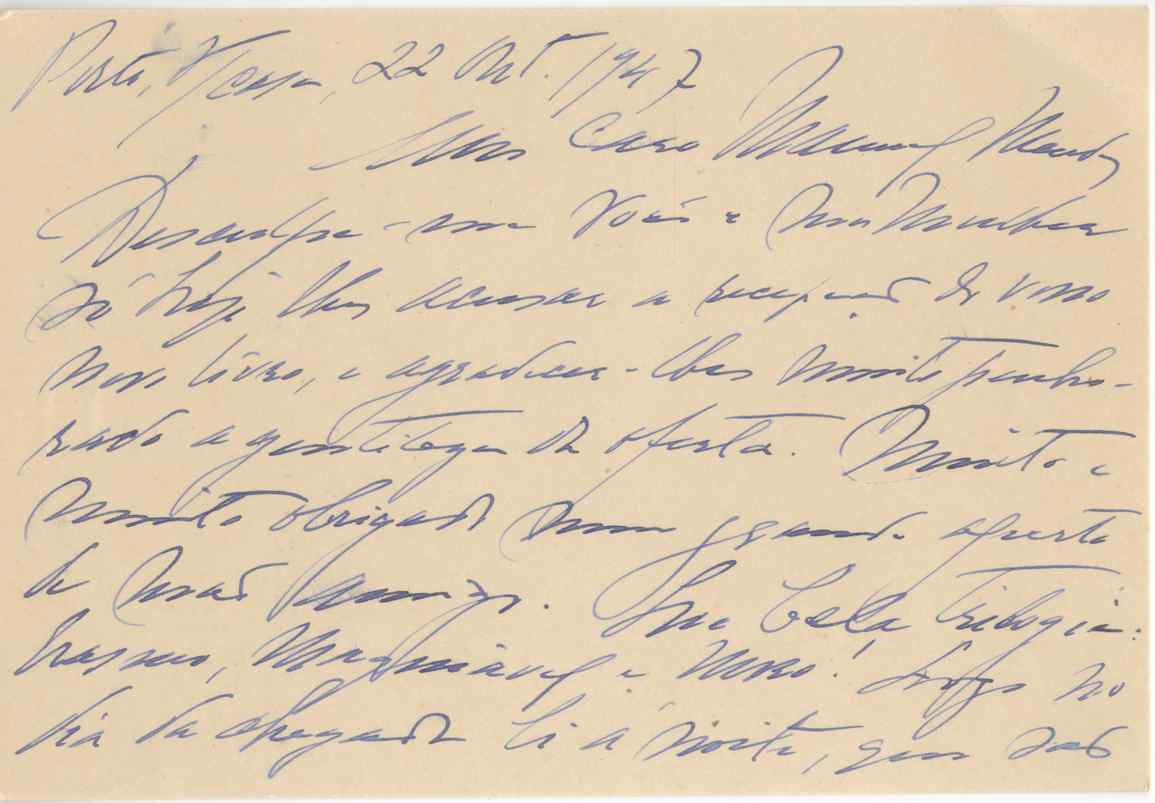 Porto, V/casa, 22 Out. 1947
Meu caro Manuel Mendes
Desculpe-me você e sua mulher
só hoje lhes acusar a recepção do vosso
novo livro, e agradecer-lhes muito penho-
rado a gentileza da oferta. Muito e
muito obrigado num grande aperto
de mão amigo. Que bela trilogia:
Erasmo, Maquiavel e Moro! Logo no
dia da chegada li à noite, que são